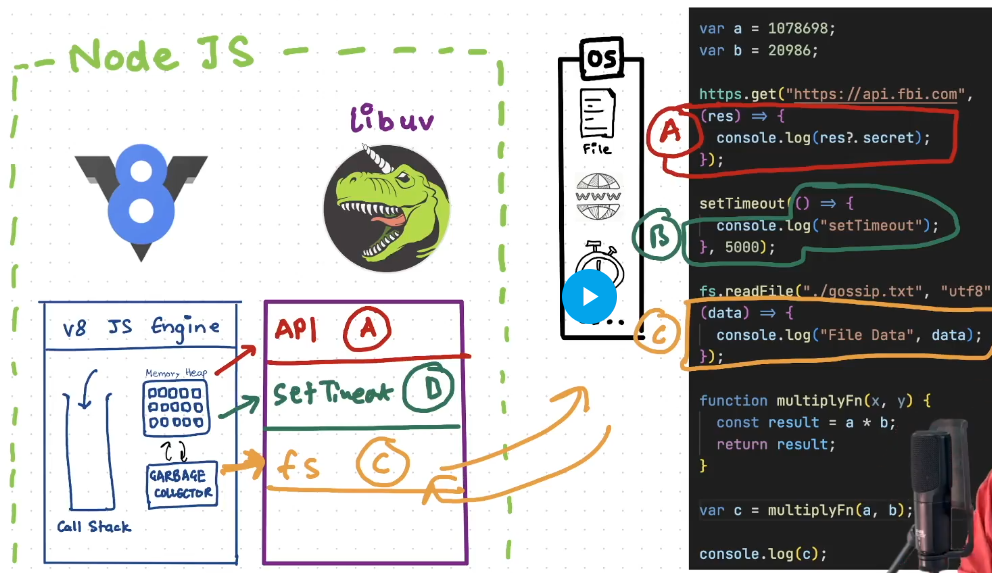 Node JS
libuv
8
V8 JS Engine
Memory Heap
GARBAGE
COLLECTOR
Call Stack
API A
setTimeout B
fs C
OS
File
WWW
A
B
C
var a = 1078698;
var b = 20986;
https.get("https://api.fbi.com",
(res) => {
console.log(res?.secret);
});
setTimeout(() => {
console.log("setTimeout");
}, 5000);
fs.readFile("./gossip.txt", "utf8"
(data) => {
console.log("File Data", data);
});
function multiplyFn(x, y) {
const result = a * b;
return result;
}
var c = multiplyFn(a, b);
console.log(c);